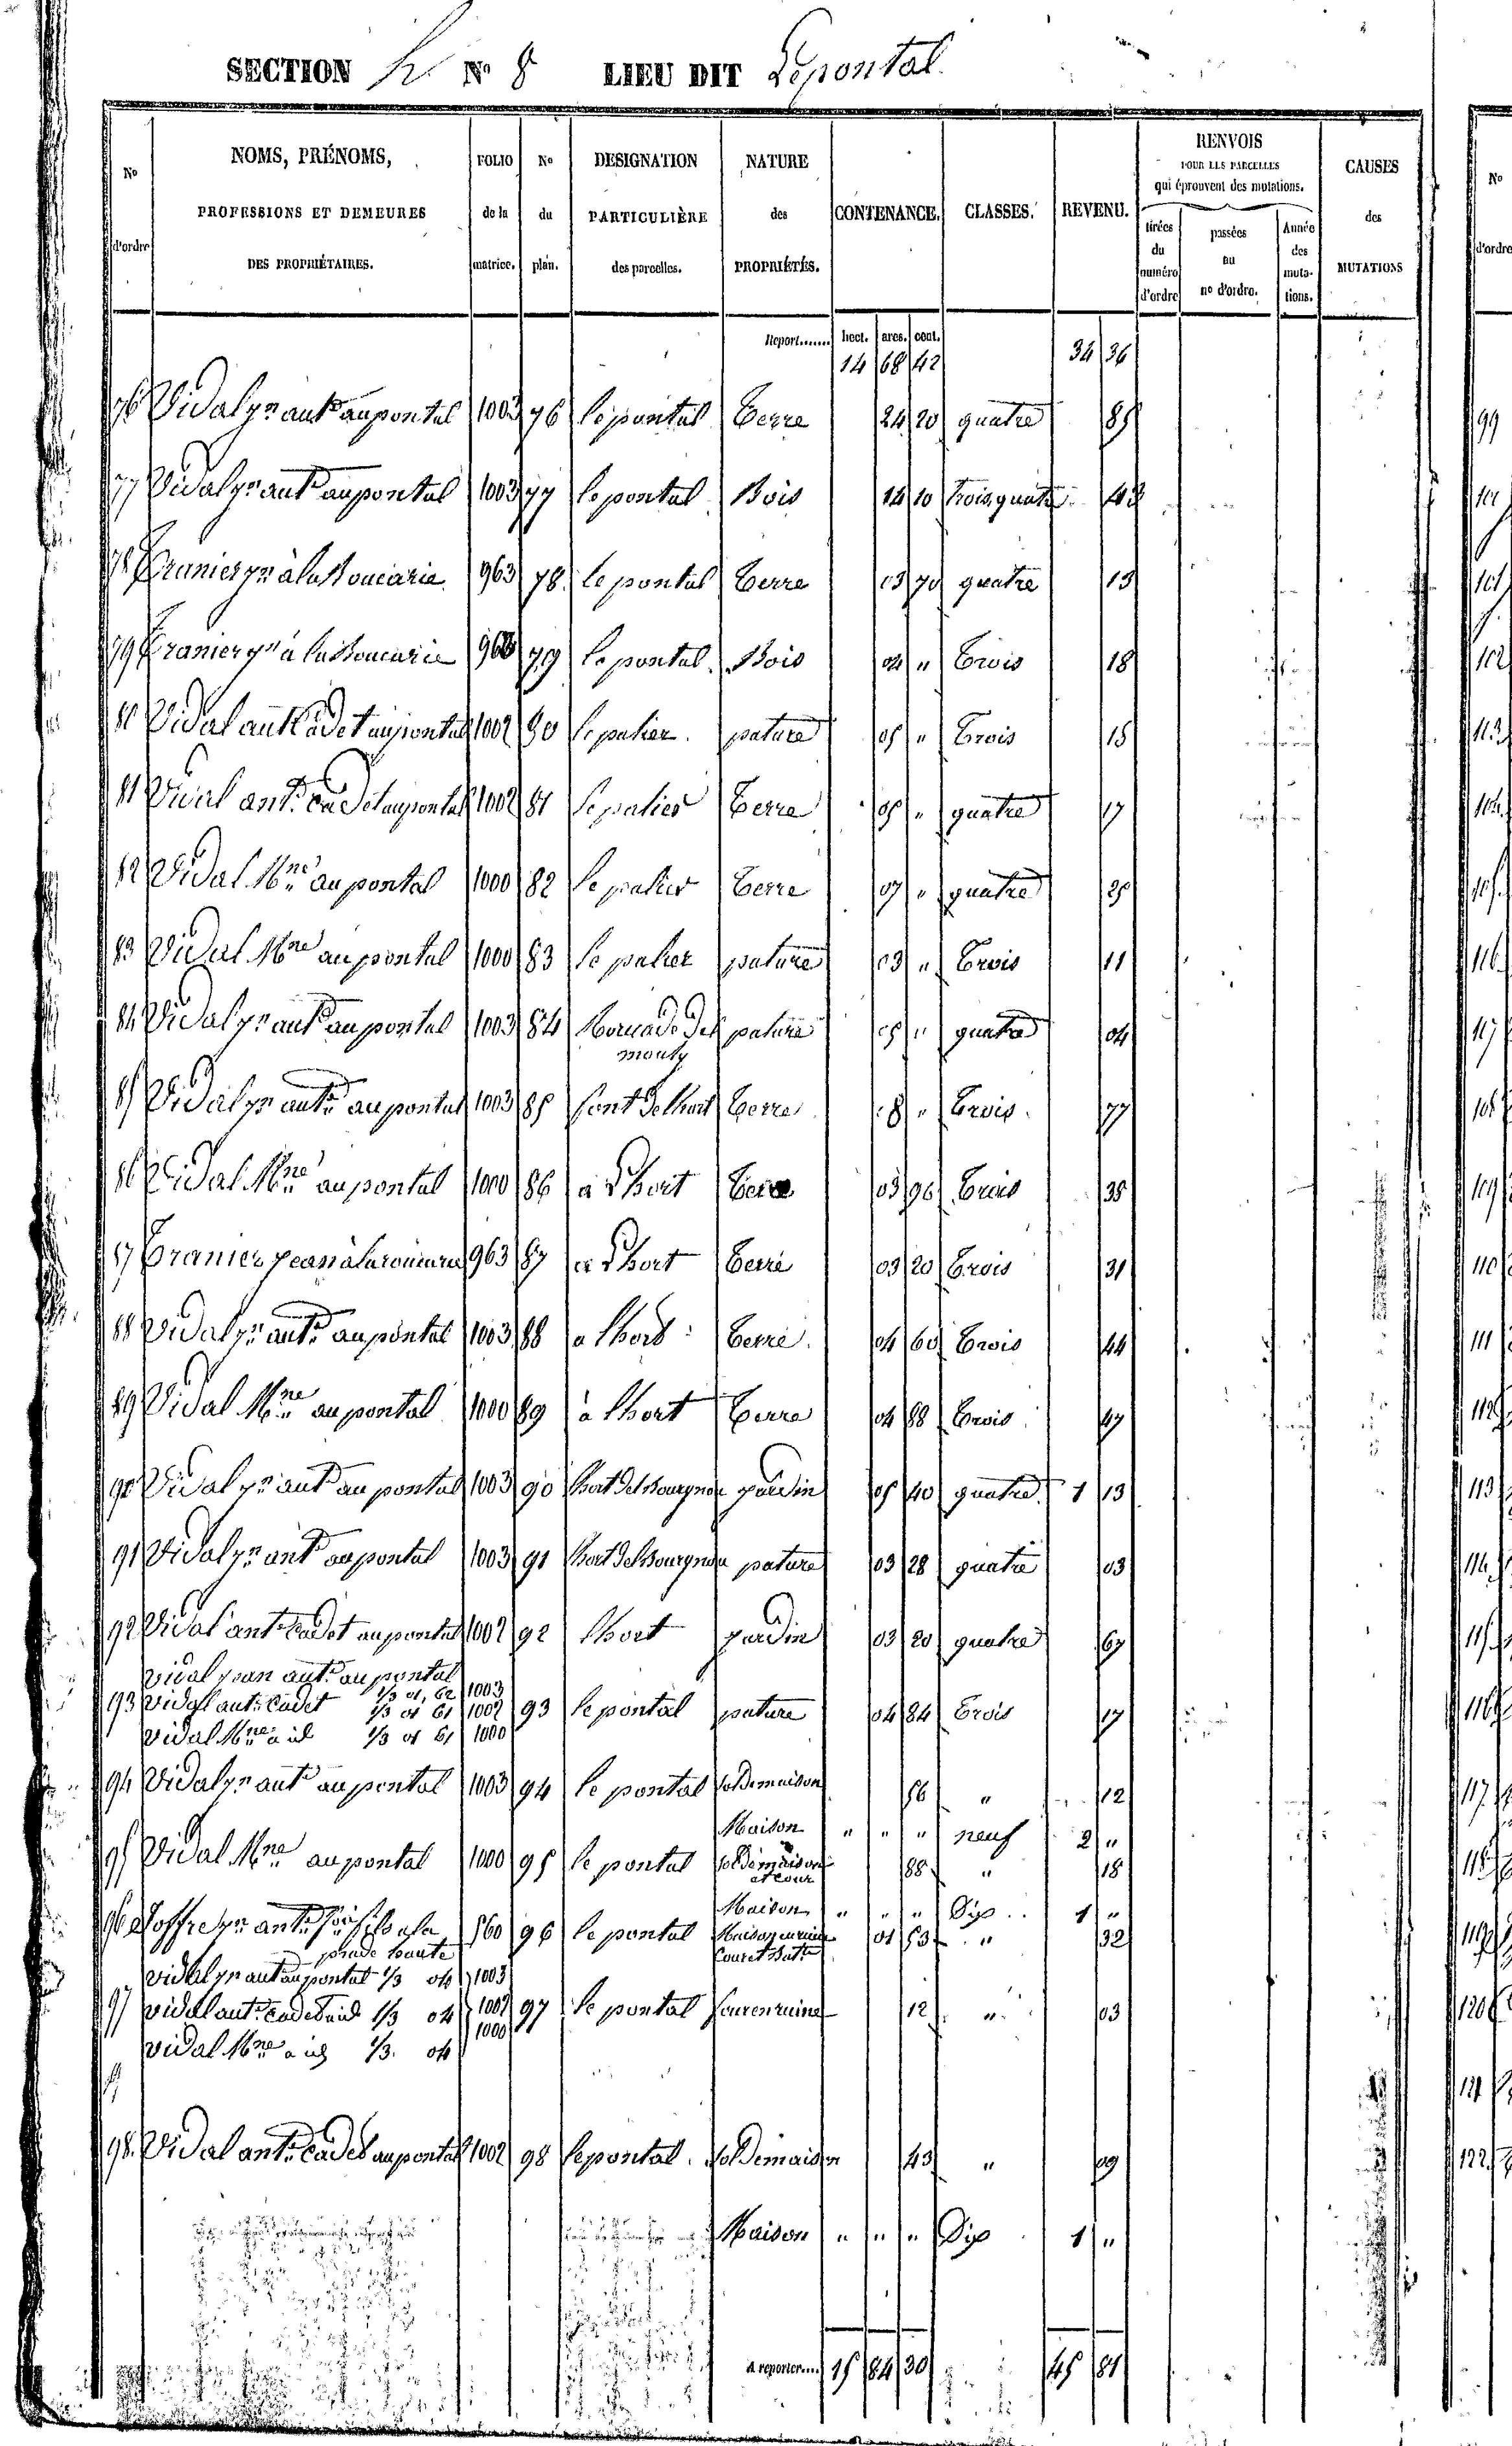 SECTION h. N° 8 LIEU DIT Lepontal
N° d'ordre | NOMS, PRÉNOMS, PROFESSIONS ET DEMEURES DES PROPRIÉTAIRES. | FOLIO de la matrice. | N° du plan. | DESIGNATION PARTICULIÈRE des parcelles. | NATURE des PROPRIÉTÉS. | CONTENANCE. | CLASSES. | REVENU. | RENVOIS POUR LES PARCELLES qui éprouvent des mutations. | CAUSES des MUTATIONS
tirées du numéro d'ordre | passées au n° d'ordre. | Année des mutations.
Report....... hect. ares. cent.
14 68 42 34 36
76 Vidal jn ante au pontal 1003 76 le pontal Terre 24 20 quatre 85
77 Vidal jn ante au pontal 1003 77 le pontal Bois 14 10 trois, quatre 43
78 Tranier jn à la Boucarie 963 78. le pontal Terre 03 70 quatre 13
79 Tranier jn à la Boucarie 963 79 le pontal Bois 04 " Trois 18
80 Vidal ant Cadet au pontal 1002 80 le patier pature 05 " Trois 18
81 Vidal ant. Cadet au pontal 1002 81 le patier Terre 05 " quatre 17
82 Vidal Mne au pontal 1000 82 le patier Terre 07 " quatre 25
83 Vidal Mne au pontal 1000 83 le patier pature 03 " Trois 11
84 Vidal jn ante au pontal 1003 84 del pature 05 " quatre 04
85 Vidal jn ante au pontal 1003 85 font de lhort Terre 08 " Trois 77
86 Vidal Mne au pontal 1000 86 a Lhort Terre 03 96 Trois 38
87 Tranier jean à la Boucarie 963 87 a Lhort Terre 03 20 Trois 31
88 Vidal jn ante au pontal 1003 88 a lhort Terre 04 60 Trois 44
89 Vidal Mne au pontal 1000 89 à lhort Terre 04 88 Trois 47
90 Vidal jn ant au pontal 1003 90 lhort del jardin 05 40 quatre 1 13
91 Vidal jn ant au pontal 1003 91 lhort del pature 03 28 quatre 03
92 Vidal ant Cadet au pontal 1002 92 lhort jardin 03 20 quatre 67
vidal jean ant. au pontal 1/3 01, 62 1003
93 vidal ant. Cadet 1/3 01 61 1002 93 le pontal pature 04 84 Trois 17
vidal Mne a id 1/3 01 61 1000
94 Vidal jn ant au pontal 1003 94 le pontal sol de maison 56 " 12
Maison " " " neuf 2 "
95 Vidal Mne au pontal 1000 95 le pontal sol de maison et cour 88 " 18
Maison " " " Dix 1 "
96 Joffre jn ant. prade haute 560 96 le pontal Maison en ruine Cour et Batt 01 53 " 32
vidal jn ant au pontal 1/3 04 1003
97 vidal ant. Cadet a id 1/3 04 1002 97 le pontal four en ruine 12 " 03
vidal Mne a id 1/3. 04 1000
98. Vidal ant. Cadet au pontal 1002 98 le pontal. sol de maison 43 " 09
Maison " " " Dix 1 "
A reporter.... 15 84 30 45 81
N° d'ordre
99